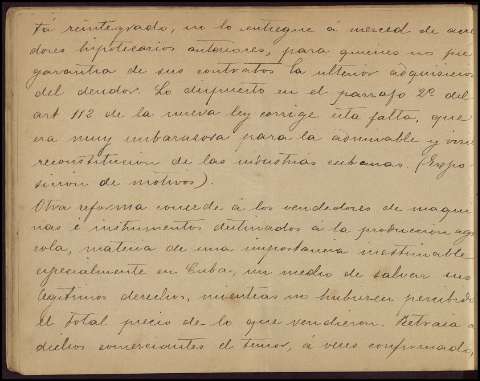 tá reintegrado, no lo entregue á merced de acree
dores hipotecarios anteriores, para quienes no fue
garantia de sus contratos la ulterior adquisicion
del deudor. Lo dispuesto en el parrafo 2º del
art 112 de la nueva ley corrige esta falta, que
era muy embarazosa para la admirable y viva
reconstitucion de las industrias cubanas. (Expo-
sicion de motivos).
Otra reforma concede á los vendedores de maqui
nas é instrumentos destinados á la produccion agri
cola, materia de una importancia inestimable
especialmente en Cuba, un medio de salvar sus
legitimos derechos, mientras no hubiesen percibido
el total precio de lo que vendieron. Retraia a
dichos comerciantes el temor, á veces confirmado,